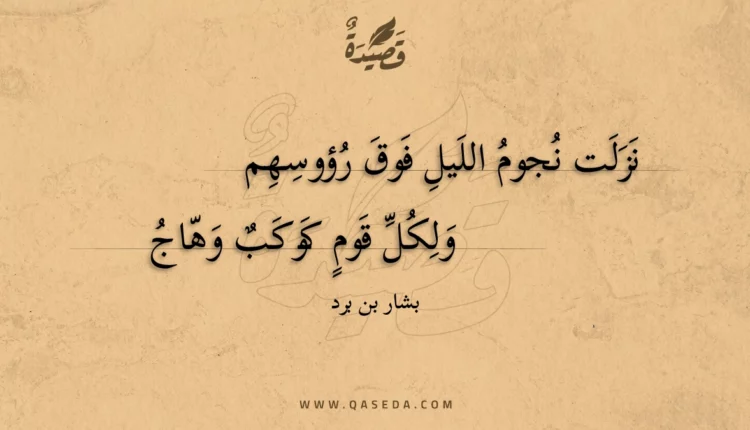 قَصِيْدَةٌ
نَزَلَت نُجومُ اللَيلِ فَوقَ رُؤوسِهِم
وَلِكُلِّ قَومٍ كَوكَبٌ وَهّاجُ
بشار بن برد
WWW.QASEDA.COM